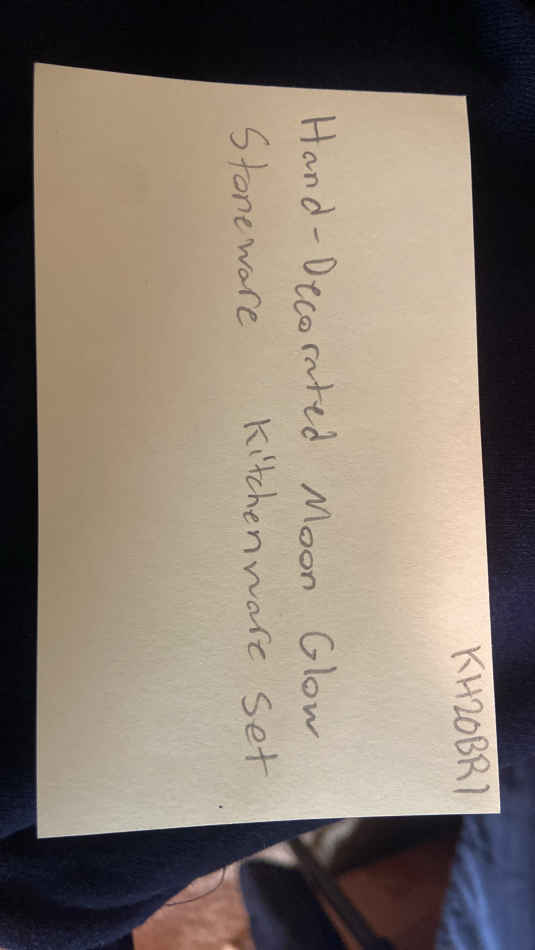 KH20BR1
Hand-Decorated Moon Glow
Stoneware Kitchenware Set